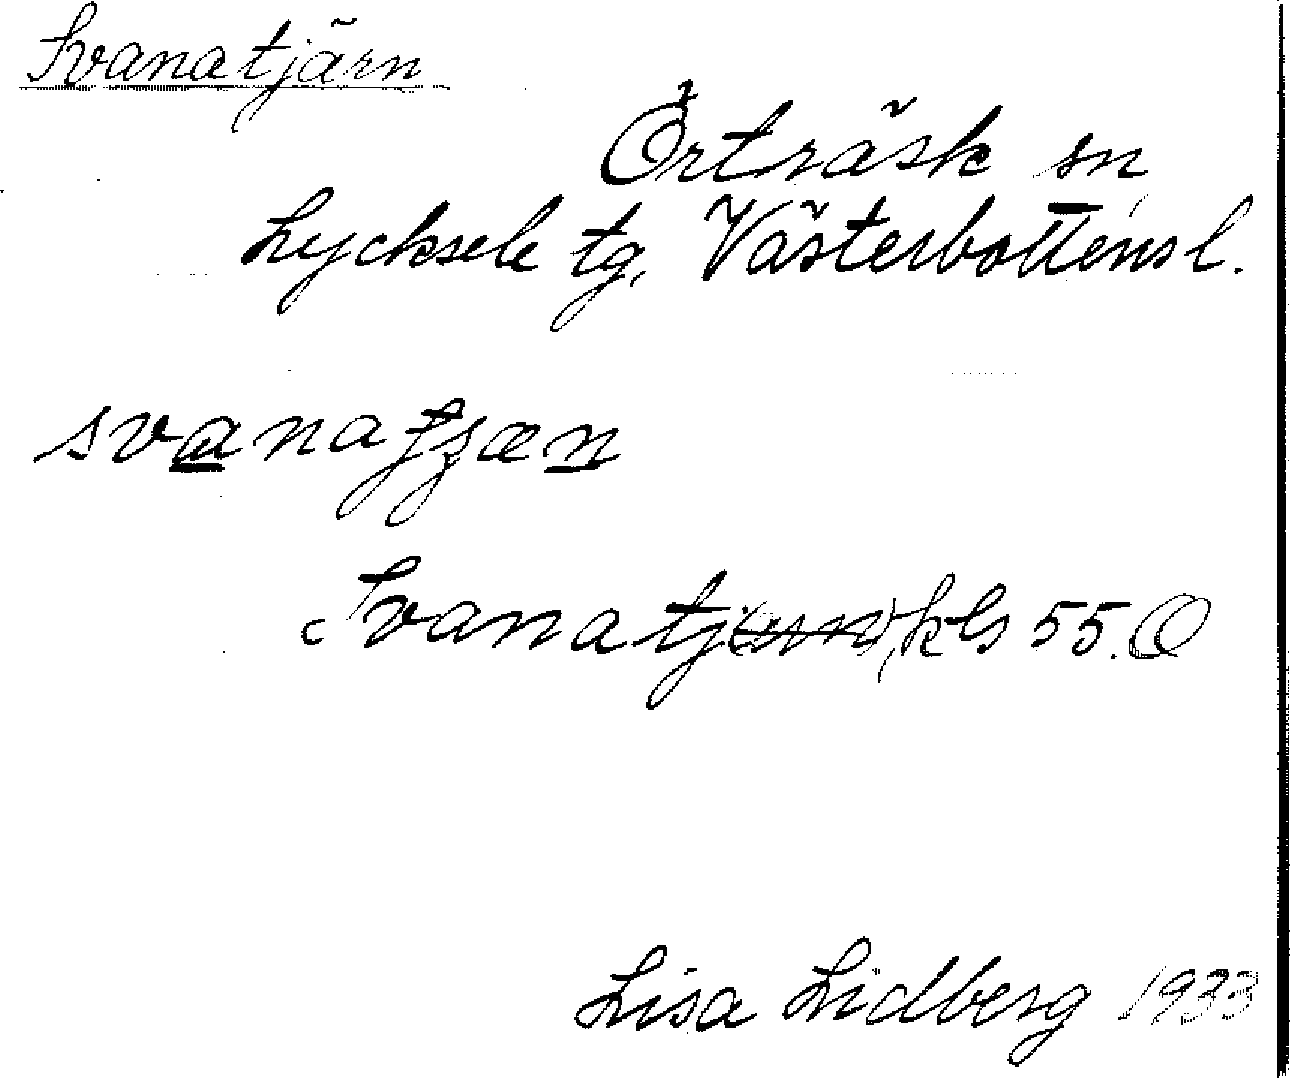 Svanatjärn
Örträsk sn
Lycksele tg, Västerbottens l.
svanatjæn
Svanatj kls 55. O
Lisa Lidberg 1933